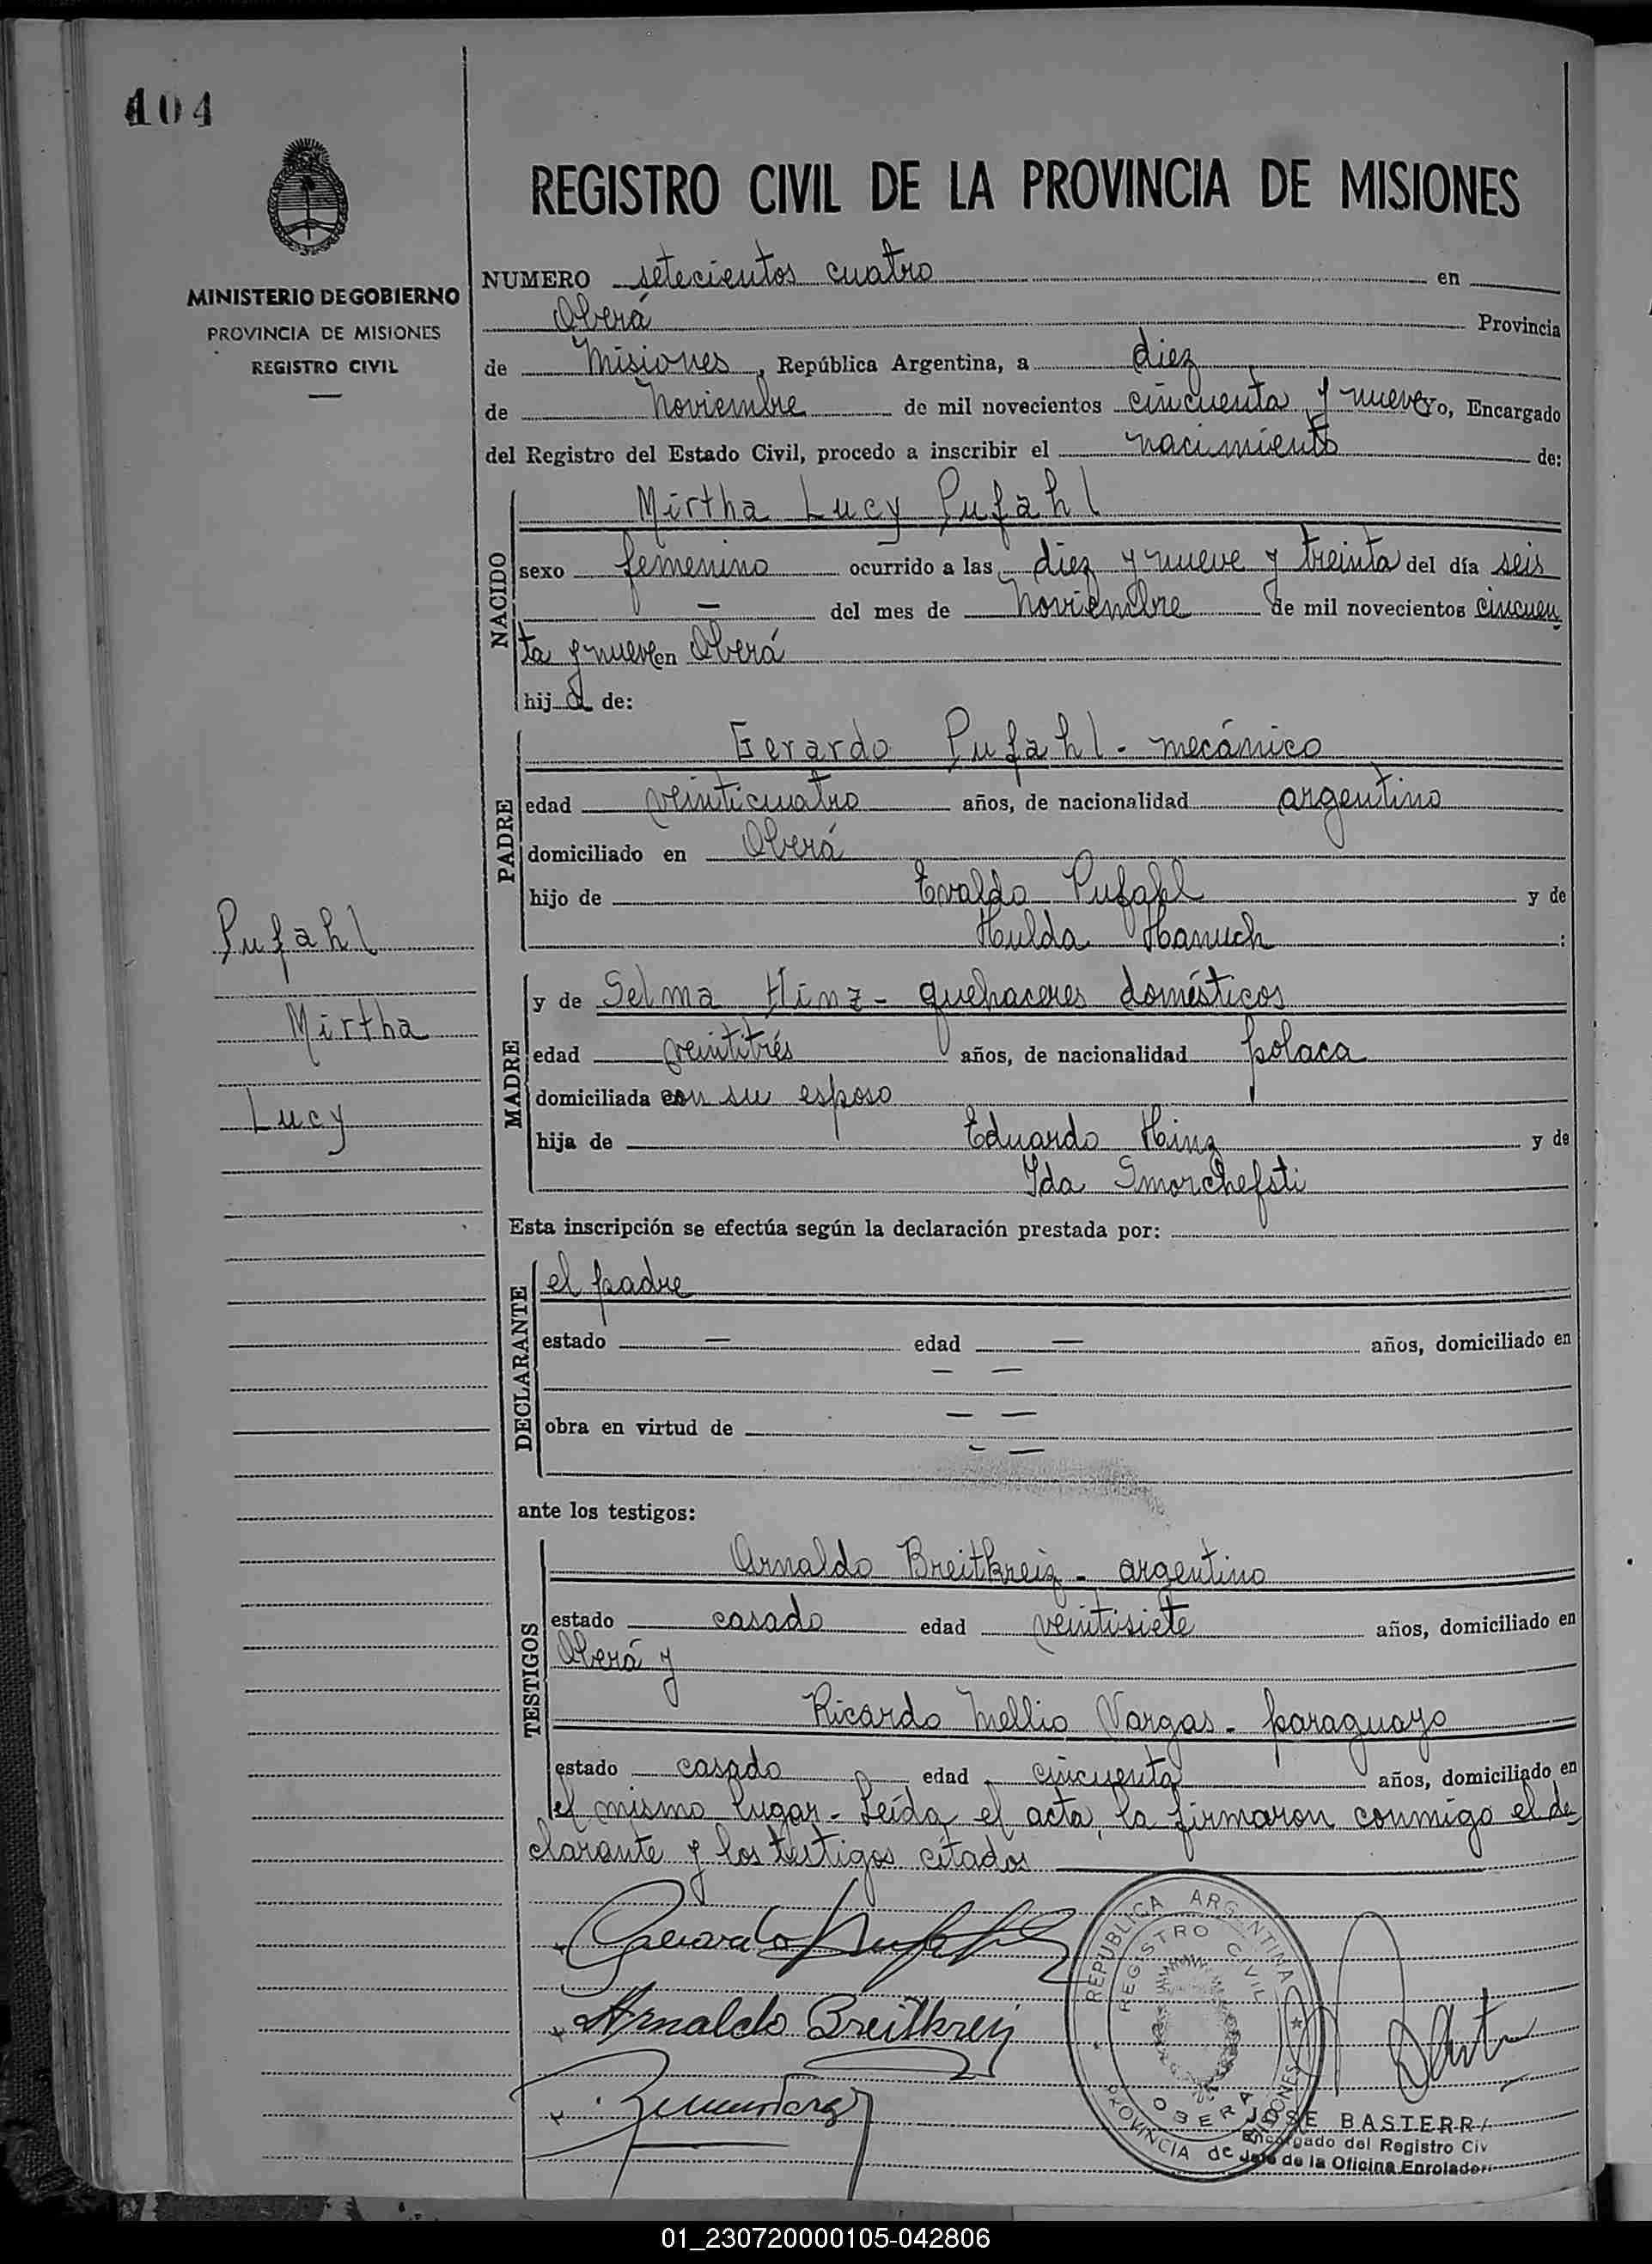 104
REGISTRO CIVIL DE LA PROVINCIA DE MISIONES
MINISTERIO DE GOBIERNO
PROVINCIA DE MISIONES
REGISTRO CIVIL
NUMERO setecientos cuatro en
Oberá Provincia
de Misiones, República Argentina, a diez
de Noviembre de mil novecientos cincuenta y nueve yo, Encargado
del Registro del Estado Civil, procedo a inscribir el nacimiento de:
NACIDO
Mirtha Lucy Pufahl
sexo femenino ocurrido a las diez y nueve y treinta del día seis
— del mes de Noviembre de mil novecientos cincuen
ta y nueve en Oberá
hija de:
PADRE
Gerardo Pufahl - mecánico
edad veinticuatro años, de nacionalidad argentino
domiciliado en Oberá
hijo de Evaldo Pufahl y de
Hulda Hanuch :
Pufahl
Mirtha
Lucy
MADRE
y de Selma Hinz - quehaceres domésticos
edad veintitrés años, de nacionalidad polaca
domiciliada con su esposo
hija de Eduardo Hinz y de
Ida Smorchefsti
Esta inscripción se efectúa según la declaración prestada por:
DECLARANTE
el padre
estado — edad — años, domiciliado en
— —
obra en virtud de — —
— —
ante los testigos:
TESTIGOS
Arnaldo Breitkreiz - argentino
estado casado edad veintisiete años, domiciliado en
Oberá y
Ricardo Mellio Vargas - paraguayo
estado casado edad cincuenta años, domiciliado en
el mismo lugar - Leída el acta, la firmaron conmigo el de
clarante y los testigos citados
Gerardo Pufahl
Arnaldo Breitkreiz
REPUBLICA ARGENTINA
REGISTRO CIVIL
OBERA
PROVINCIA de MISIONES
JOSE BASTERRA
Encargado del Registro Civ
Jefe de la Oficina Enrolador
01_230720000105-042806